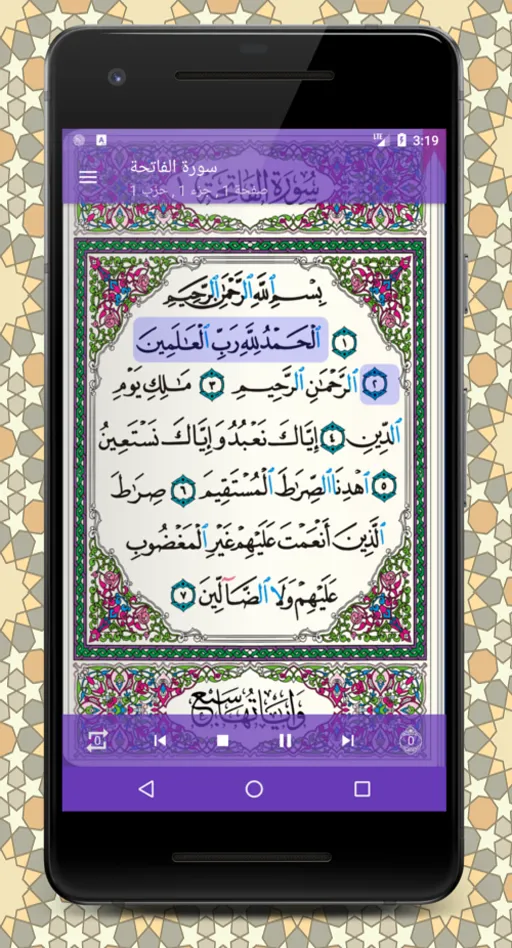 LTE 3:19
سورة الفاتحة
صفحة 1 , جزء 1 , حزب 1
سُورَةُ الفَاتِحَة
بِسْمِ ٱللَّهِ ٱلرَّحْمَٰنِ ٱلرَّحِيمِ ١
ٱلْحَمْدُ لِلَّهِ رَبِّ ٱلْعَٰلَمِينَ
٢ ٱلرَّحْمَٰنِ ٱلرَّحِيمِ ٣ مَٰلِكِ يَوْمِ
ٱلدِّينِ ٤ إِيَّاكَ نَعْبُدُ وَإِيَّاكَ نَسْتَعِينُ
٥ ٱهْدِنَا ٱلصِّرَٰطَ ٱلْمُسْتَقِيمَ ٦ صِرَٰطَ
ٱلَّذِينَ أَنْعَمْتَ عَلَيْهِمْ غَيْرِ ٱلْمَغْضُوبِ
عَلَيْهِمْ وَلَا ٱلضَّآلِّينَ ٧
وَآيَاتُهَا سَبْع
0 0